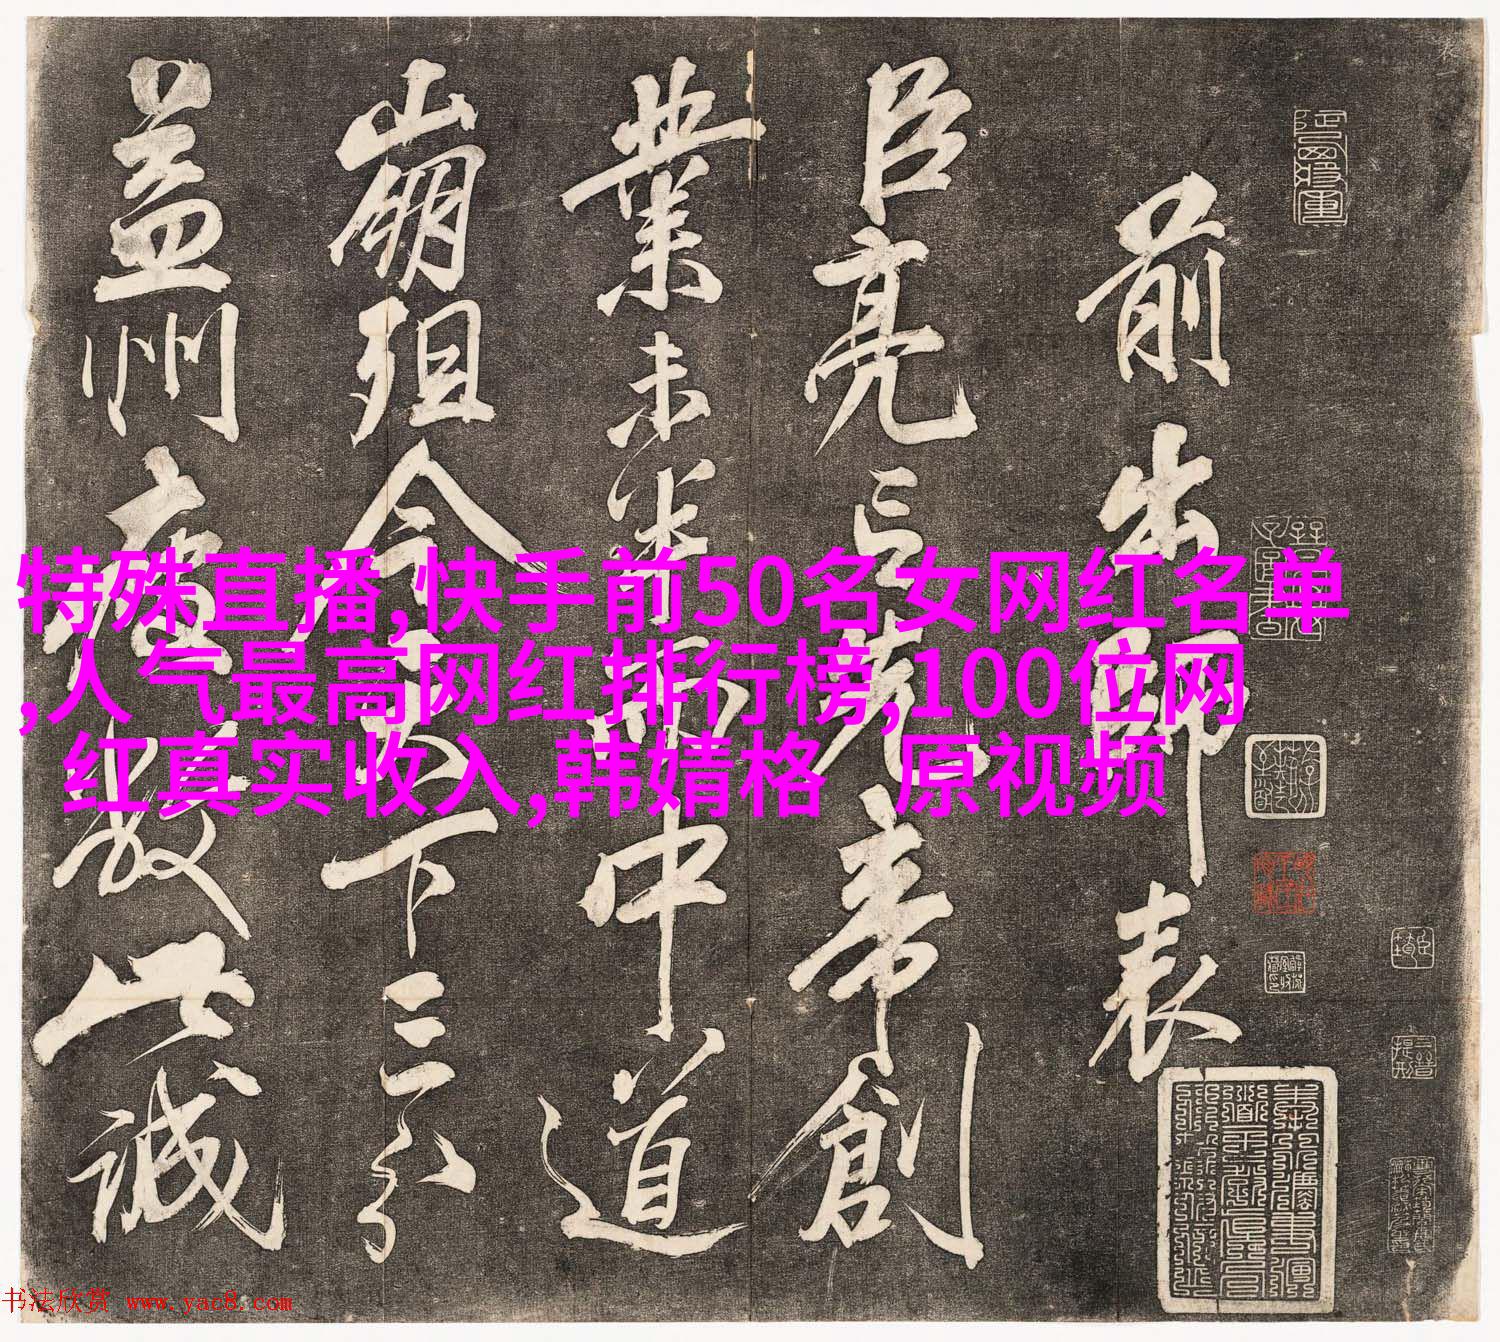 前出師表
臣亮言先帝創
業未半而中道
崩殂今天下三分
益州疲敝此誠
特殊直播,快手前50名女网红名单
,人气最高网红排行榜,100位网
红真实收入,韩婧格 原视频
书法欣赏 www.yac8.com